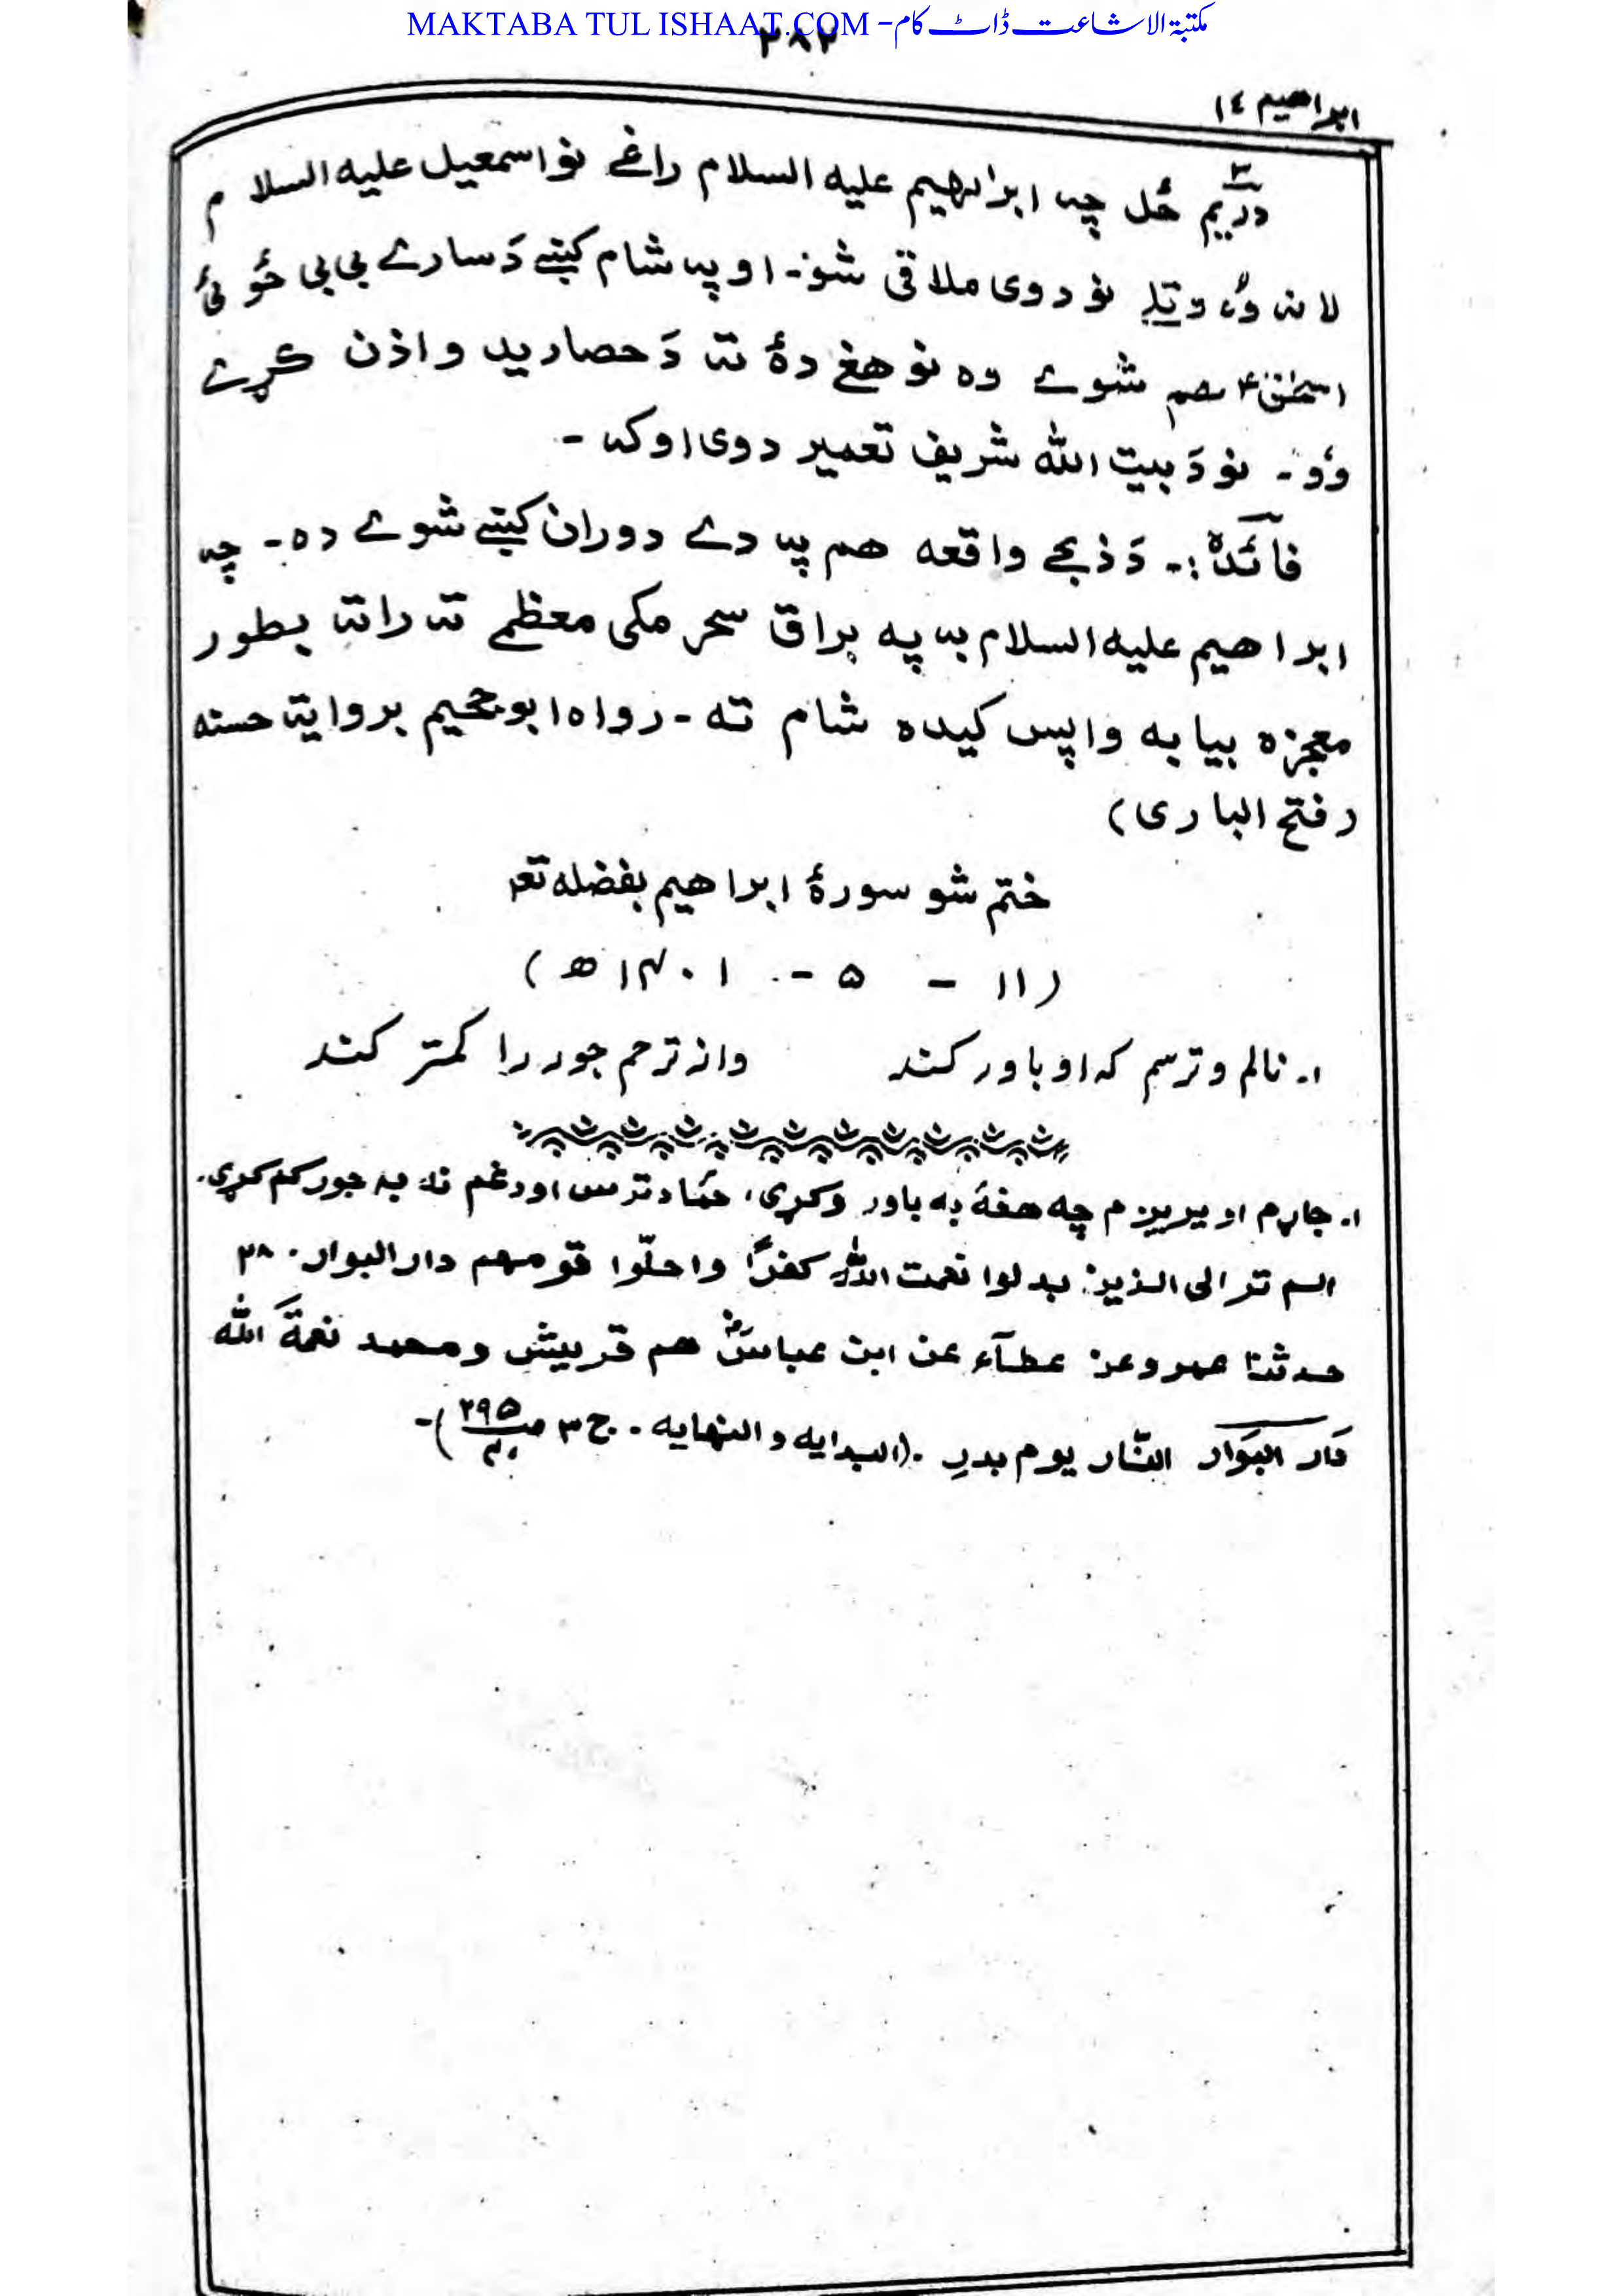 MAKTABA TUL ISHAAT.COM - مکتبۃ الاشاعت ڈاٹ کام
۳۸۲
ابراهيم ١٤
دریم ځل چه ابراهيم عليه السلام راغے نو اسمعيل عليه السلام
لا نه وُه وتلے نو دوی ملاقی شو۔ او په شام کښے دَ سارے بی بی ځوئ
اسحٰق ؑ هم شوے وه نو هغ دهٔ ته دَ حصارید و اذن کړے
وُو۔ نو دَ بیت الله شریف تعمیر دوی اوکه۔
فائده:۔ دَ ذبحے واقعه هم په دے دوران کښے شوے ده۔ چه
ابراهيم عليه السلام به په براق سحر مکی معظمے ته راته بطور
معجزه بیا به واپس کیده شام ته۔ رواه ابو جحیم بروایة حسنه
(فتح الباری)
ختم شو سورۀ ابراهيم بفضله تعہ
(١١ - ۵ - ۱۴۰۱ ھ)
۱۔ نالم و ترسم که او باور کند وز ترحم جور را کمتر کند
۱۔ جاړم او یریږم چه هغهٔ به باور وکړی، حُما د ترس او د غم نه به جور کم کړی۔
الم تر الى الذين بدلوا نعمت الله كفرًا واحلّوا قومهم دار البوار۔ ۲۸
حدثنا عمرو عن عطآء عن ابن عباسؓ هم قريش ومحمد نعمةَ الله
دَار البَوَار النّار يوم بدرِ ۔ (البدايه والنهايه ۔ ج ۳ صـ ۲۹۵)۔